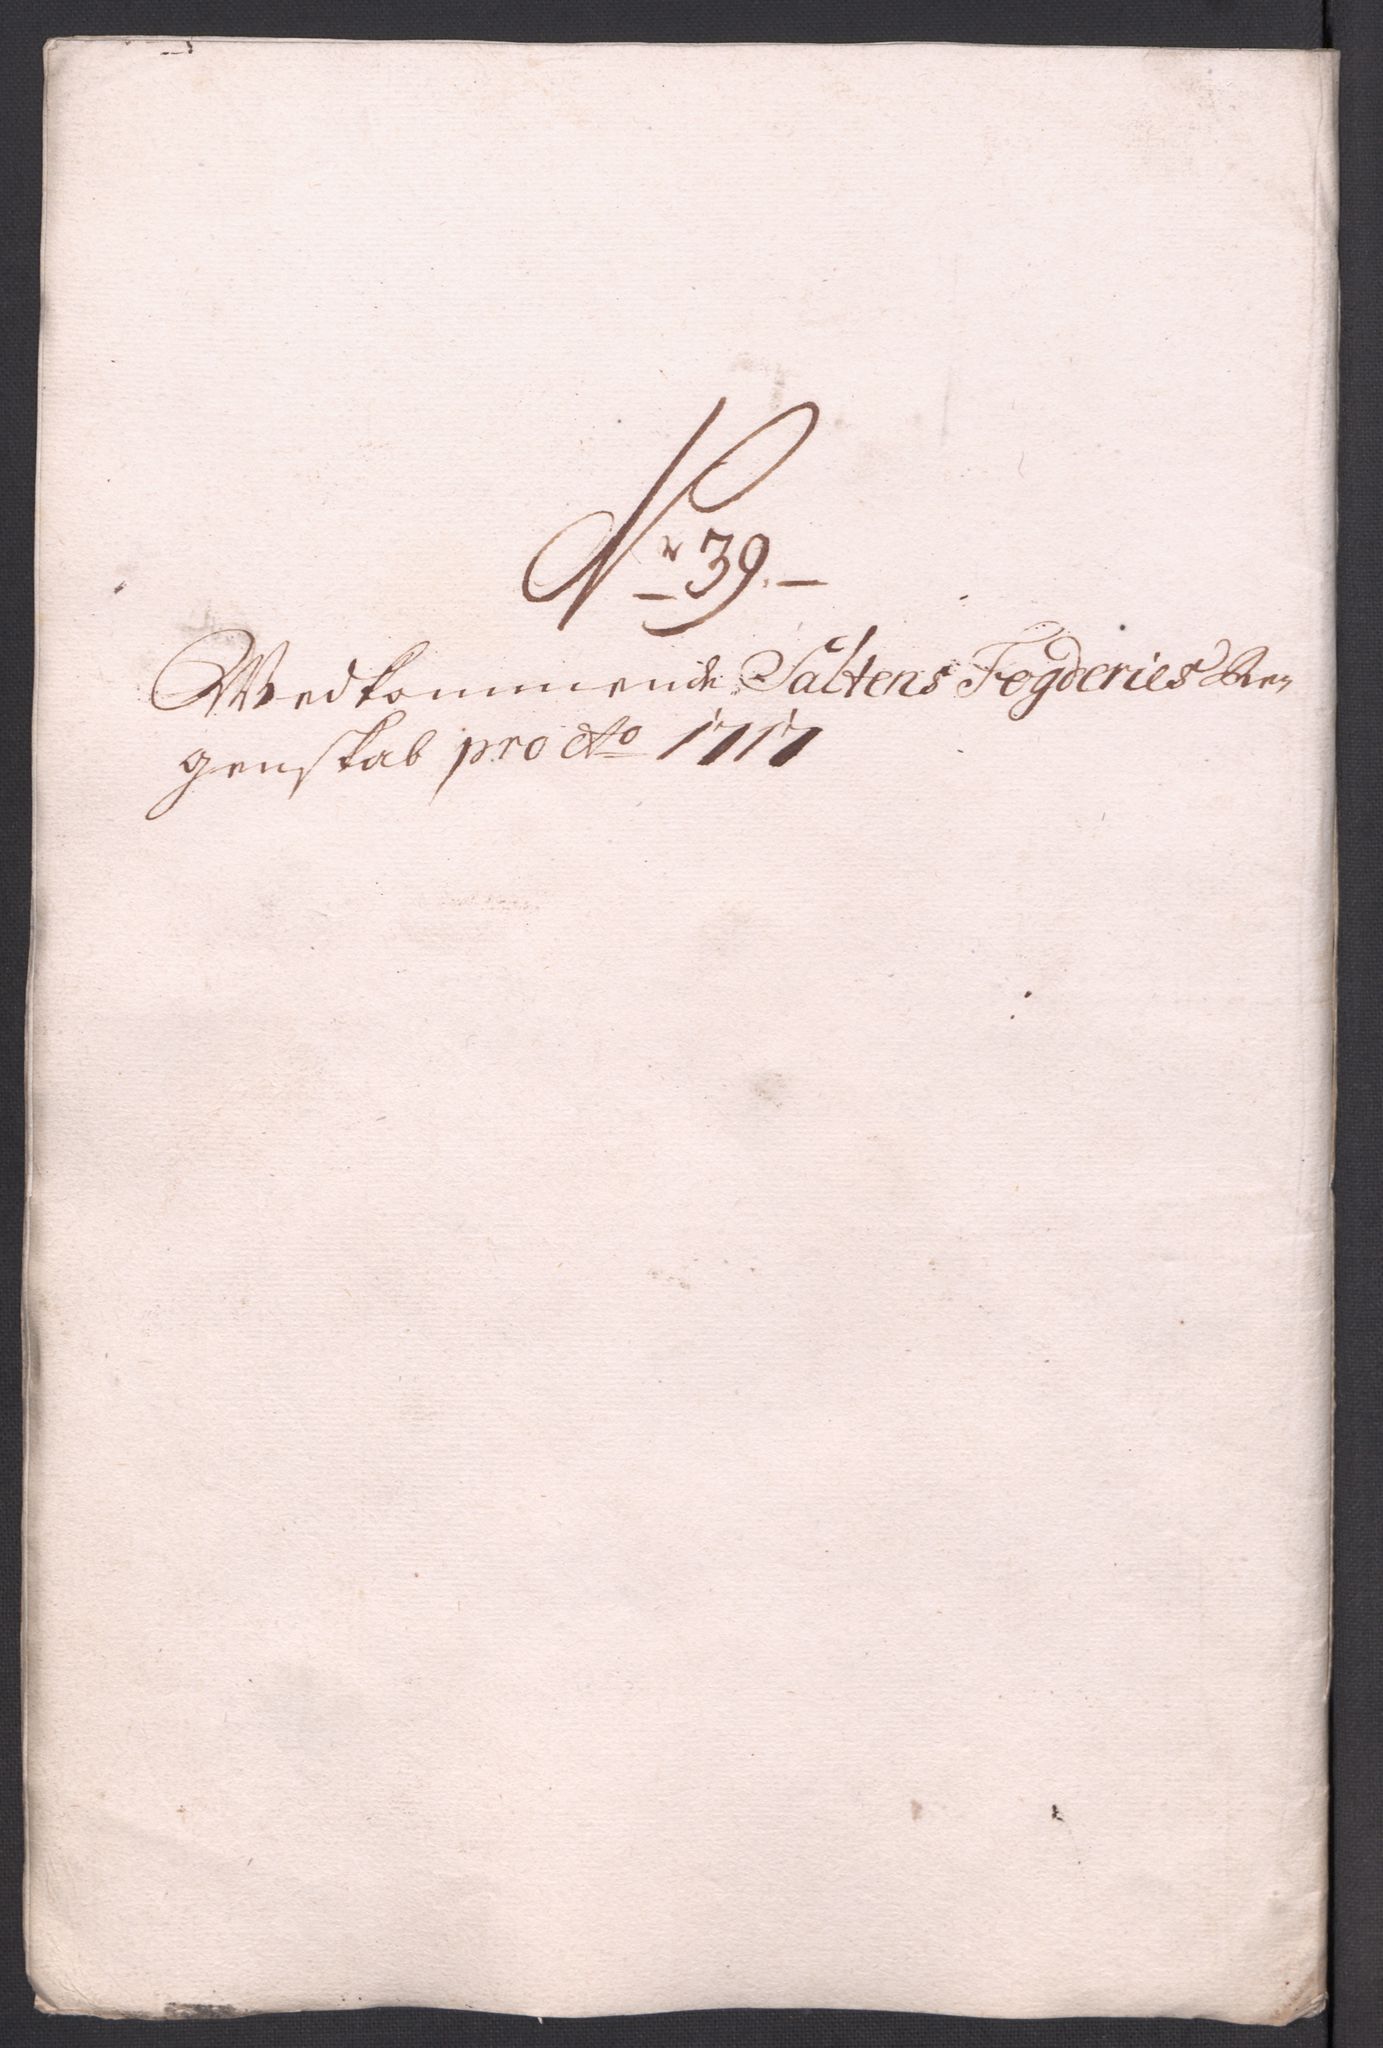 Nr 39.
Wedkommende Saltens Fogderies Re-
genskab pro Ao 1717